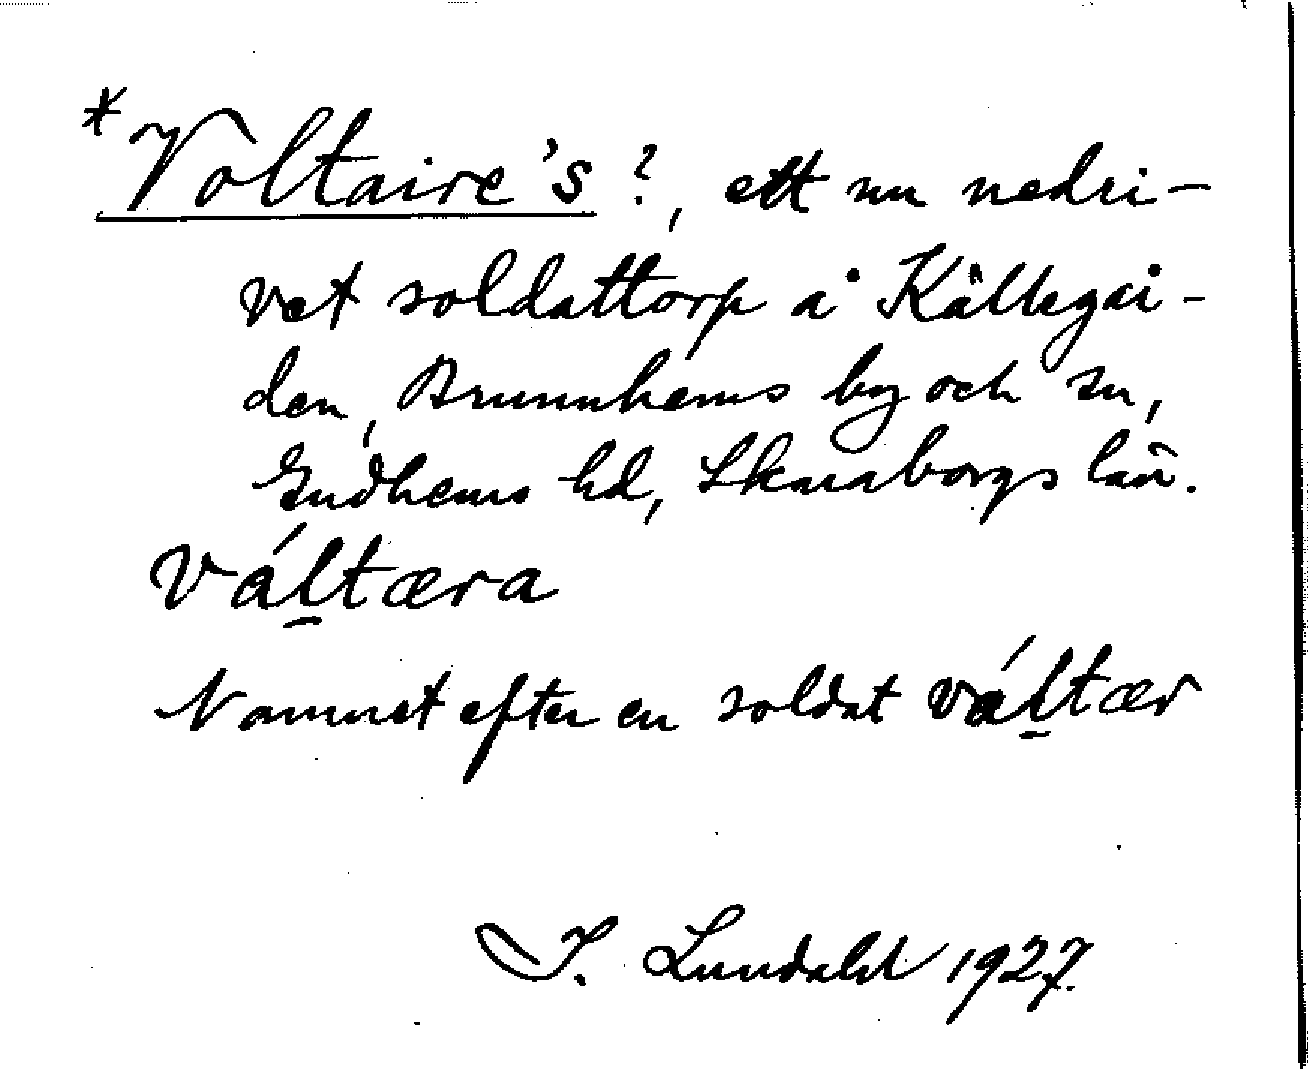 *Voltaire's?, ett nu nedri-
vet soldattorp å Källegår-
den, Brunnhems by och sn,
Gudhems hd, Skaraborgs län.
vál̲tæra
Namnet efter en soldat vál̲tær
I. Lundahl 1927.